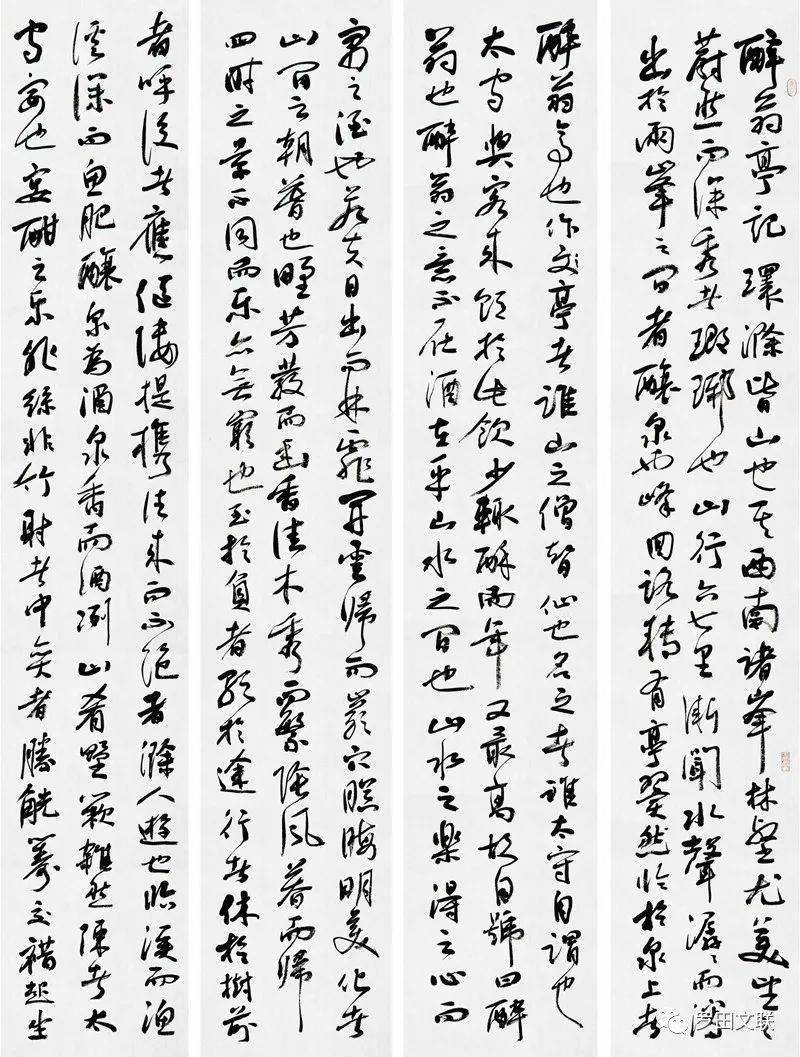 醉翁亭記環滁皆山也其西南諸峯林壑尤美望之
蔚然而深秀者瑯琊也山行六七里漸聞水聲潺潺而瀉
出於兩峯之間者釀泉也峰回路轉有亭翼然臨於泉上者
醉翁亭也作此亭者誰山之僧智仙也名之者誰太守自謂也
太守與客來飲於此飲少輒醉而年又最高故自號曰醉
翁也醉翁之意不在酒在乎山水之間也山水之樂得之心而
寓之酒也若夫日出而林霏開雲歸而巖穴暝晦明變化者
山間之朝暮也野芳發而幽香佳木秀而繁陰風暮而歸
四時之景不同而樂亦無窮也至於負者歌於途行者休於樹前
者呼後者應傴僂提攜往來而不絕者滁人遊也臨溪而漁
溪深而魚肥釀泉為酒泉香而酒洌山肴野蔌雜然陳者太
守宴也宴酣之樂非絲非竹射者中弈者勝觥籌交錯起坐
罗田文联